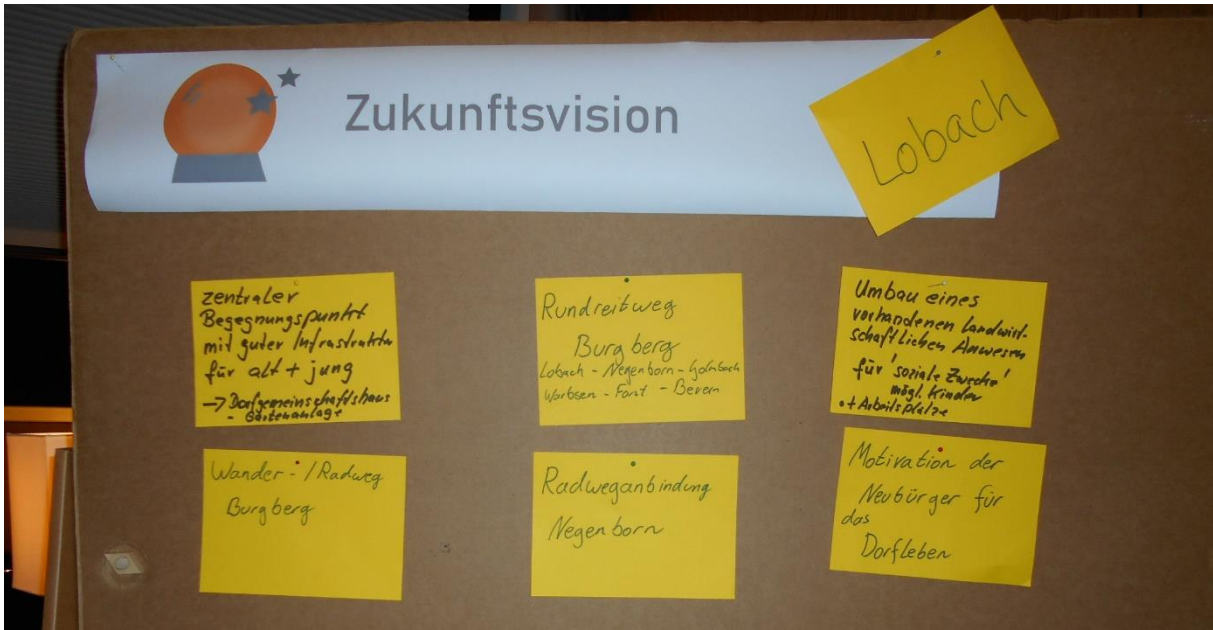 Zukunftsvision
Lobach
zentraler
Begegnungspunkt
mit guter Infrastruktur
für alt + jung
-> Dorfgemeinschaftshaus
- Gartenanlage
Rundreitweg
Burgberg
Lobach - Negenborn - Golmbach
Warbsen - Forst - Bevern
Umbau eines
vorhandenen landwirt-
schaftlichen Anwesen
für 'soziale Zwecke'
mögl. Kinder
• + Arbeitsplätze
Wander-/Radweg
Burgberg
Radweganbindung
Negenborn
Motivation der
Neubürger für
das
Dorfleben